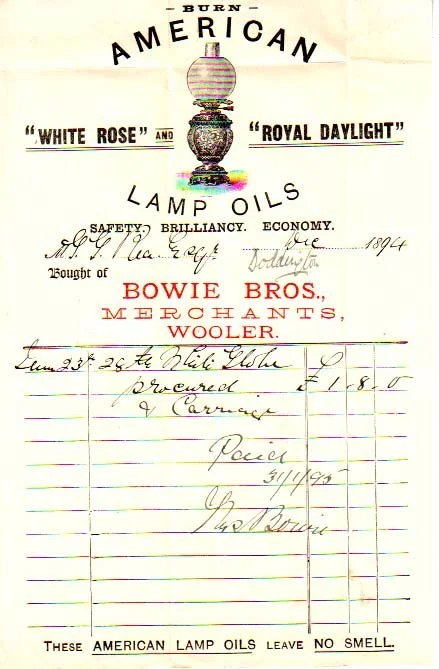 - BURN -
AMERICAN
"WHITE ROSE" AND "ROYAL DAYLIGHT"
LAMP OILS
SAFETY. BRILLIANCY. ECONOMY.
Esqr. Dec 1894
Doddington
Bought of
BOWIE BROS.,
MERCHANTS,
WOOLER.
23d White Globe
procured £ 1. 8. 0
& Carriage
Paid
31/1/95
Bowie
THESE AMERICAN LAMP OILS LEAVE NO SMELL.